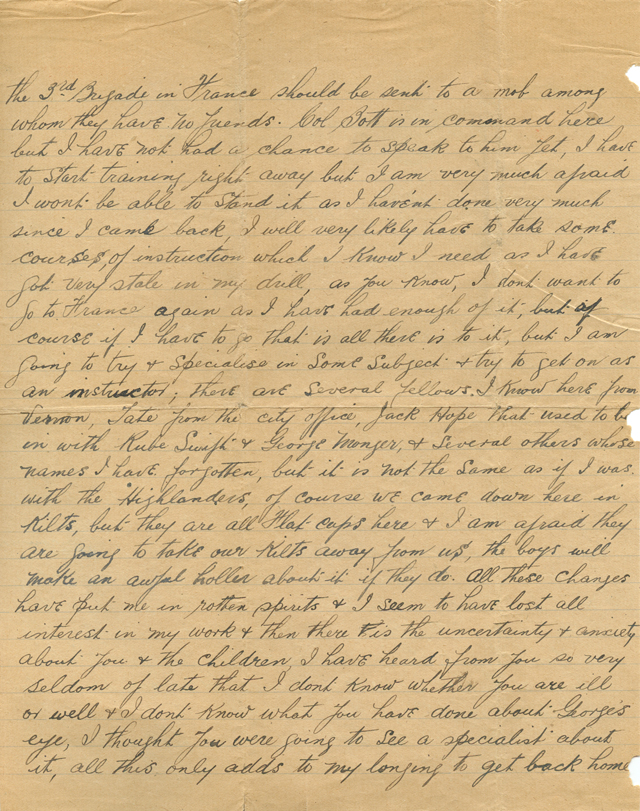 the 3rd Brigade in France should be sent to a mob among
whom they have no friends. Col Bott is in command here
but I have not had a chance to speak to him yet, I have
to start training right away but I am very much afraid
I wont be able to stand it as I havent done very much
since I came back, I will very likely have to take some
courses, of instruction which I know I need as I have
got very stale in my drill, as you know, I dont want to
go to France again as I have had enough of it, but of
course if I have to go that is all there is to it, but I am
going to try & specialise in some subject & try to get on as
an instructor; there are several fellows I know here from
Vernon, Tate from the city office, Jack Hope that used to be
in with Rube Swift & George Monger, & several others whose
names I have forgotten, but it is not the same as if I was
with the Highlanders, of course we came down here in
Kilts, but they are all flat caps here & I am afraid they
are going to take our Kilts away from us, the boys will
make an awful holler about it if they do. All these changes
have put me in rotten spirits & I seem to have lost all
interest in my work & then there is the uncertainty & anxiety
about you & the children, I have heard from you so very
seldom of late that I dont know whether you are ill
or well & I dont know what you have done about George's
eye, I thought you were going to see a specialist about
it, all this only adds to my longing to get back home